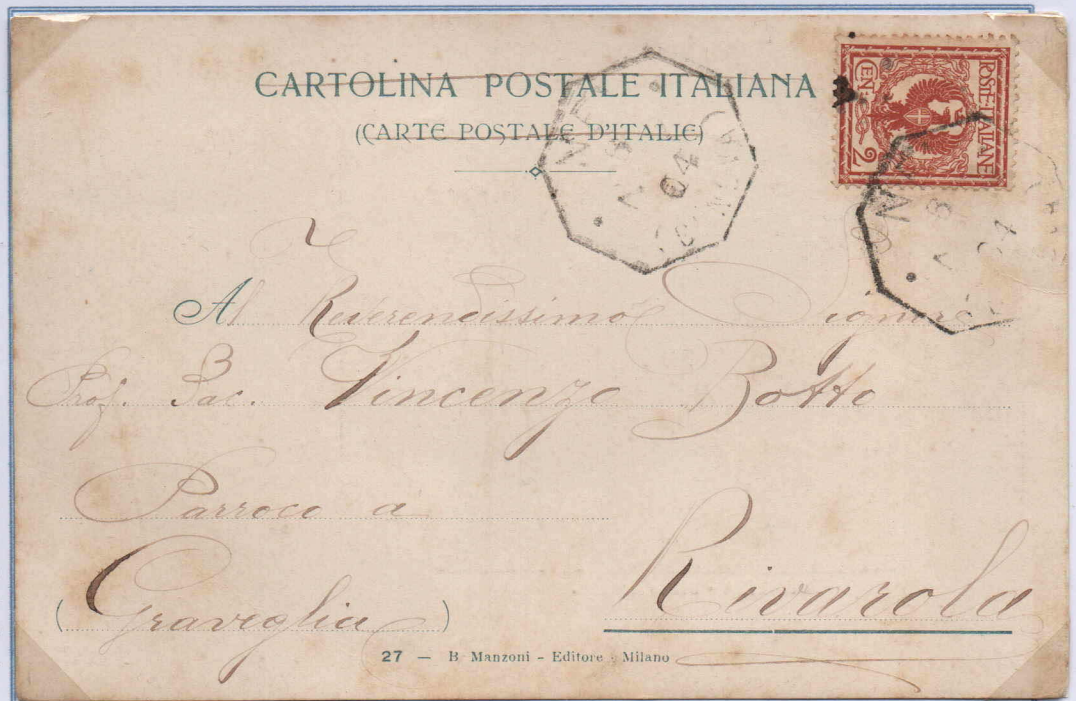 CARTOLINA POSTALE ITALIANA
(CARTE POSTALE D'ITALIE)
POSTE·ITALIANE
CEN. 2
NE
8
04
NE
8
04
Al Reverendissimo Signore
Prof. Sac. Vincenzo Botto
Parroco a
Rivarola
(Graveglia)
27 — B. Manzoni - Editore - Milano